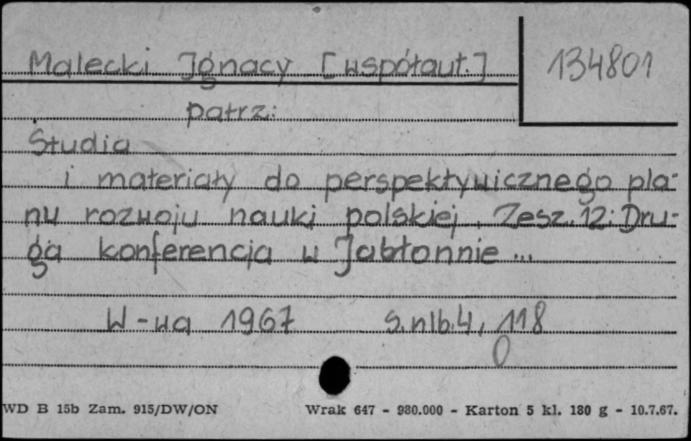 Malecki Ignacy [współaut.] 134801
patrz:
Studia
i materiały do perspektywicznego pla-
nu rozwoju nauki polskiej. Zesz. 12: Dru-
ga konferencja w Jabłonnie...
W-wa 1967 s. nlb. 4, 118
0
WD B 15b Zam. 915/DW/ON Wrak 647 - 980.000 - Karton 5 kl. 180 g - 10.7.67.